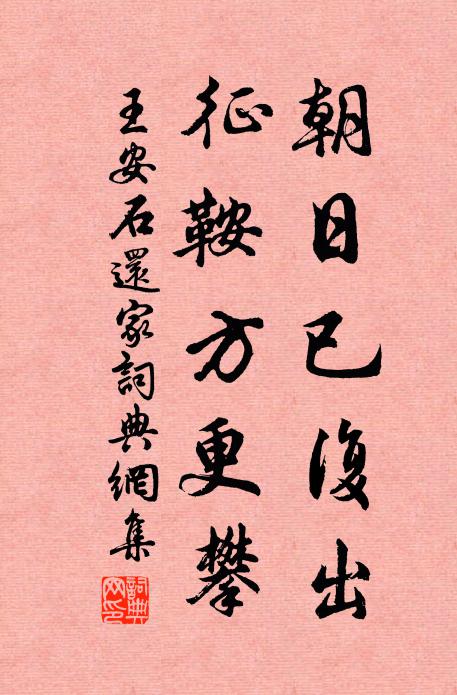 朝日已復出
征鞍方更攀
王安石還家詞典網集
詞典
网印